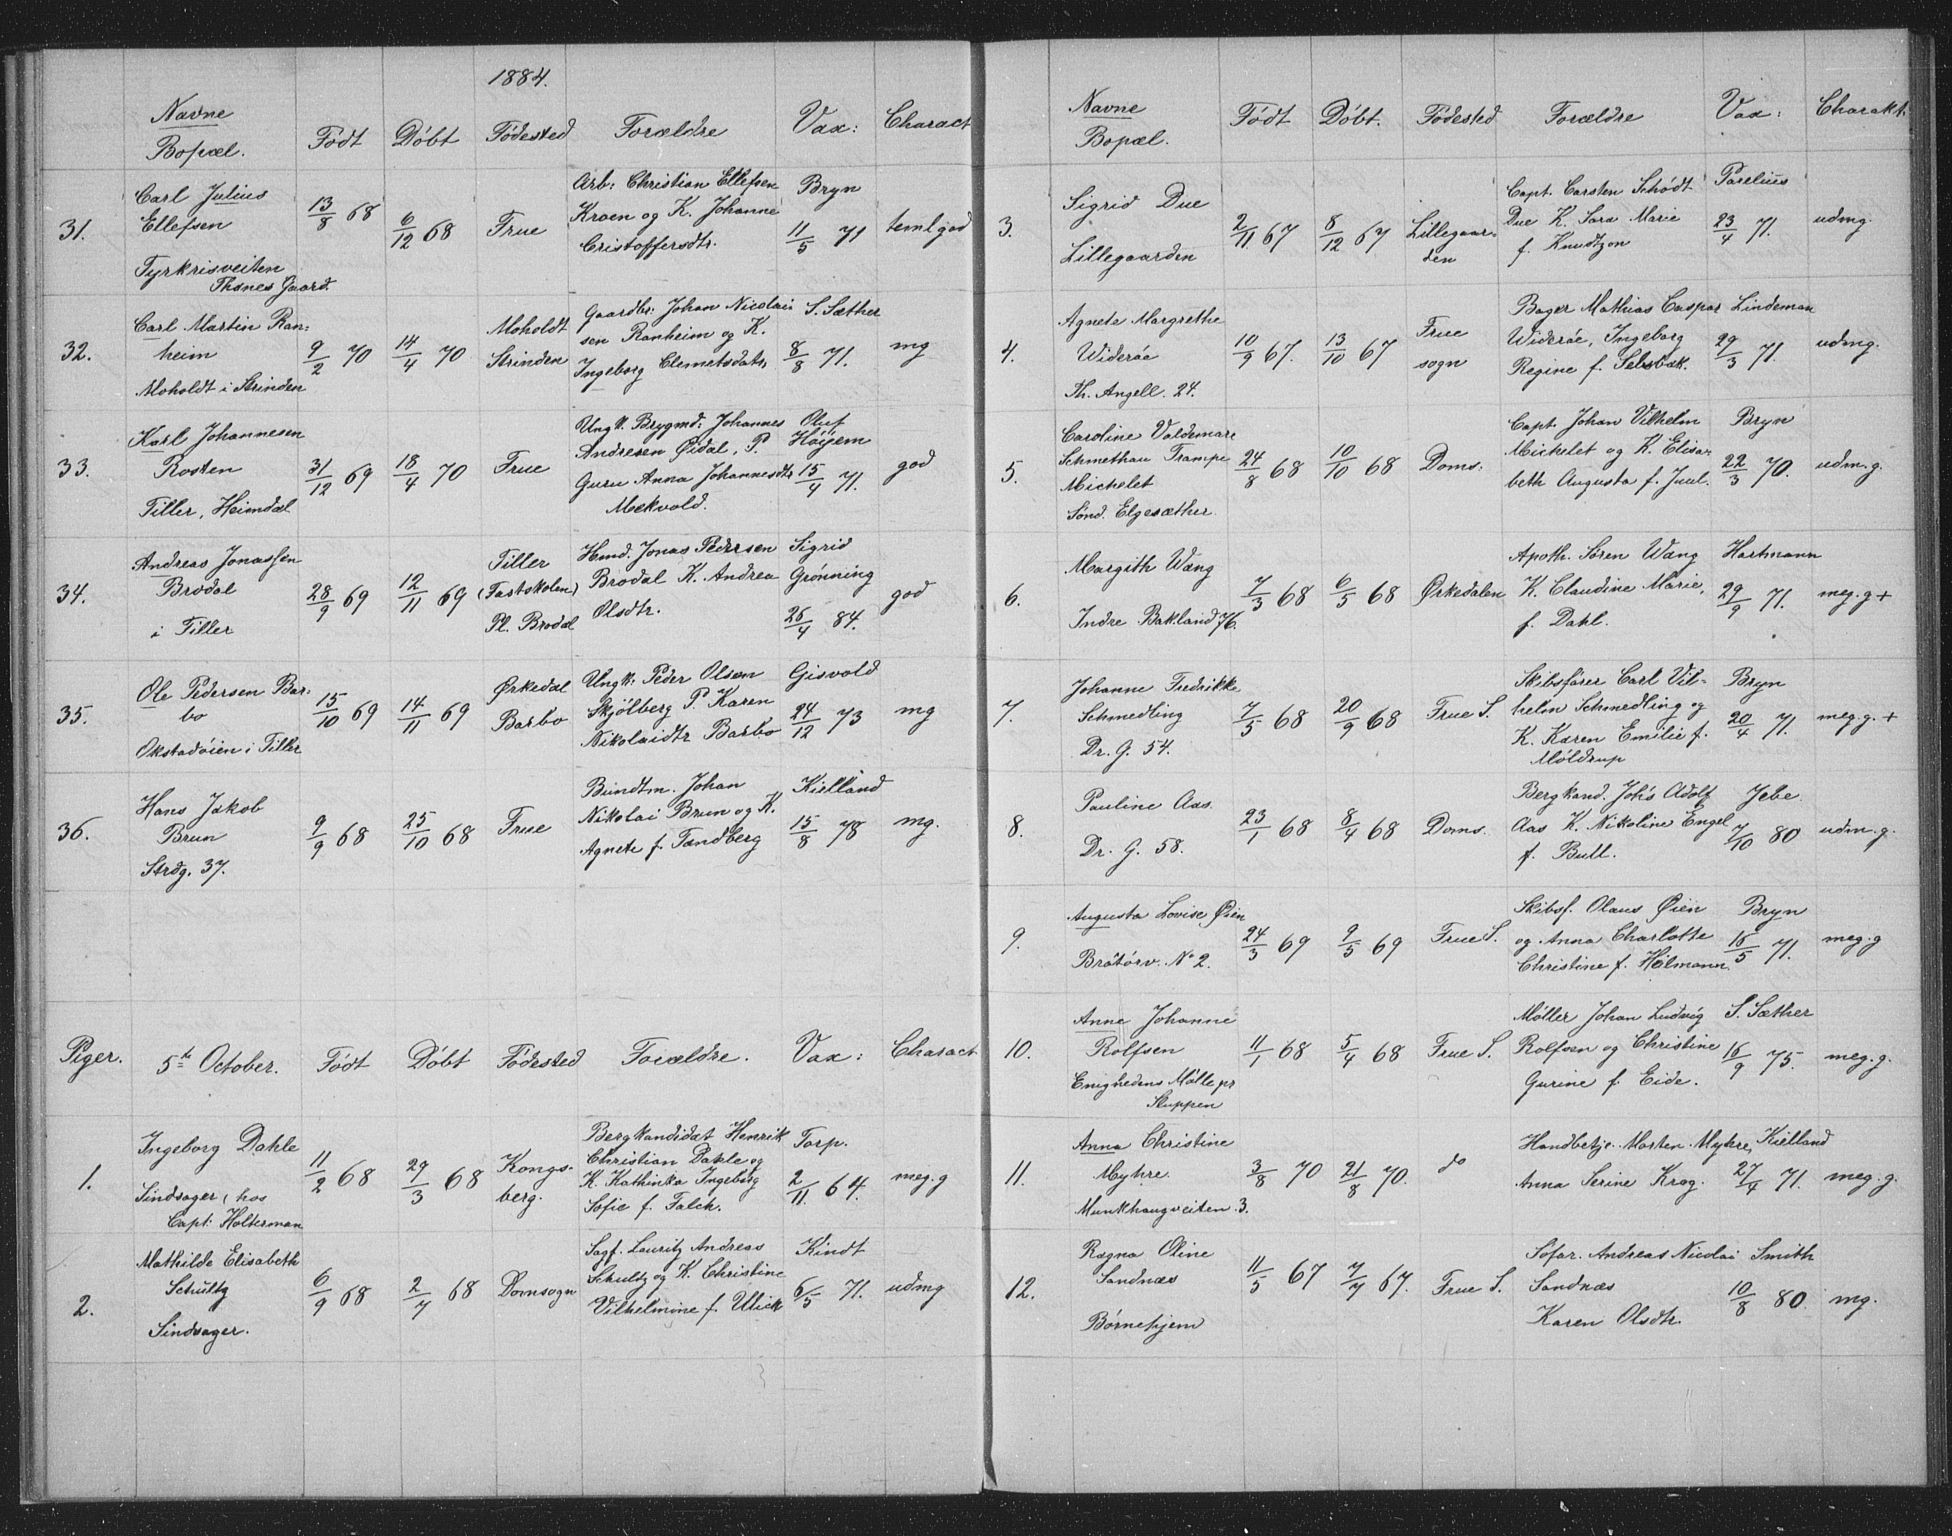 1884.
Navne
Bopæl.
Født
Døbt
Fødested
Forældre
Vax:
Charact
31.
Carl Julius
Ellefsen
Tyrkrisveiten
Thones Gaard.
13/8 68
6/12 68
Frue
Arb: Christian Ellefsen
Kroen og K. Johanne
Cristoffersdtr.
Bryn
11/5 71
teml god
32.
Carl Martin Ran:
heim
Moholdt i Strinden
9/2 70
14/4 70
Moholdt
Strinden
Gaardbr: Johan Nicolai
sen Ranheim og K.
Ingeborg Clemetsdatr.
S. Sæther
8/8 71.
mg
33.
Karl Johannesen
Rosten
Tiller, Heimdal
31/12 69
18/4 70
Frue
Ungk. Brygmd: Johannes
Andresen Øidal, P.
Guru Anna Johannesdtr
Mekvold.
Oluf
Høyem
15/4 71.
god
34.
Andreas Jonassen
Brodal
i Tiller
28/9 69
12/11 69
Tiller
(Fastskolen)
Pl. Brodal
Hmd. Jonas Pedersen
Brodal K. Andrea
Olsdtr.
Sigrid
Grønning
26/4 84.
god
35.
Ole Pedersen Bar:
bo
Okstadøien i Tiller
15/10 69
14/11 69
Ørkedal
Barbo
Ungk: Peder Olsen
Skjølberg P. Karen
Nikolaidtr Barbo
Gisvold
24/12 73
mg
36.
Hans Jakob
Brun
Strdg. 37.
9/9 68
25/10 68
Frue
Bundtm. Johan
Nikolai Brun og K.
Agnete f. Tandberg
Kielland
15/8 78
mg.
Piger.
5te October.
Født
Døbt
Fødested
Forældre.
Vax:
Charact
1.
Ingeborg Dahle
Sindsager, hos
Capt. Holterman
11/2 68
29/3 68
Kongs-
berg.
Bergkandidat Henrik
Christian Dahle og
K. Kathinka Ingeborg
Sofie f. Falch.
Torp.
2/11 64.
meg. g
2.
Mathilde Elisabeth
Schultz
Sindsager.
6/9 68
2/7 68
Domsogn
Sagf. Lauritz Andreas
Schultz og K. Christine
Vilhelmine f. Ulick
Kindt
6/5 71.
udmg
Navne
Bopæl.
Født
Døbt.
Fødested
Forældre
Vax:
Charakt.
3.
Sigrid Due
Lillegaarden
2/11 67
8/12 67
Lillegaar-
den
Capt. Carsten Schødt
Due K. Sara Marie
f. Knudtzon
Parelius
23/4 71.
udmg
4.
Agnete Margrethe
Widerøe
Th. Angell. 24.
10/9 67.
13/10 67
Frue
sogn
Bager Mathias Caspar
Widerøe, Ingeborg
Regine f. Selsbak.
Lindeman
29/3 71.
udmg.
5.
Caroline Valdemare
Schmettau Trampe
Michelet
Sønd. Elgesæther.
24/8 68
10/10 68
Doms.
Capt. Johan Vilhelm
Michelet og K. Elisa-
beth Augusta f. Juul.
Bryn
22/3 70.
udm. g.
6.
Margith Wang
Indre Bakland 76.
7/3 68
6/5 68
Ørkedalen
Apoth. Søren Wang
K. Claudine Marie,
f. Dahl.
Hartmann
29/9 71.
meg. g +
7.
Johanne Fredrikke
Schmedling
Dr. G. 54.
7/5 68
20/9 68
Frue S.
Skibsfører Carl Vil-
helm Schmedling og
K. Karen Emilie f.
Møldrup
Bryn
20/4 71.
meg. g. +
8.
Pauline Aas
Dr. G. 58.
23/1 68
8/4 68
Doms.
Bergkand. Johs Adolf
Aas K. Nikoline Engel
f. Bull.
Jebe
7/10 80
udm. g.
9.
Augusta Lovise Øien
Bratørv. No 2.
24/3 69
9/5 69
Frue S.
Skibsf. Olaus Øien
og Anna Charlotte
Christine f. Holmann.
Bryn
16/5 71.
meg. g
10.
Anne Johanne
Rolfsen
Enighedens Mølle pr
Sluppen
11/1 68
5/4 68
Frue S.
Møller Johan Ludvig
Rolfsen og Christine
Gurine f. Eide.
S. Sæther
16/9 75.
meg. g.
11.
Anna Christine
Myhre.
Munkhaugveiten 3.
3/8 70
21/8 70.
do
Handbetje. Morten Myhre,
Anna Serine Krog.
Kielland
27/4 71.
meg. g.
12.
Ragna Oline
Sandnæs
Børnehjem
11/5 67
7/7 67.
Frue S.
Sofar. Andreas Nicolai
Sandnæs
Karen Olsdtr.
Smith
10/8 80.
mg.